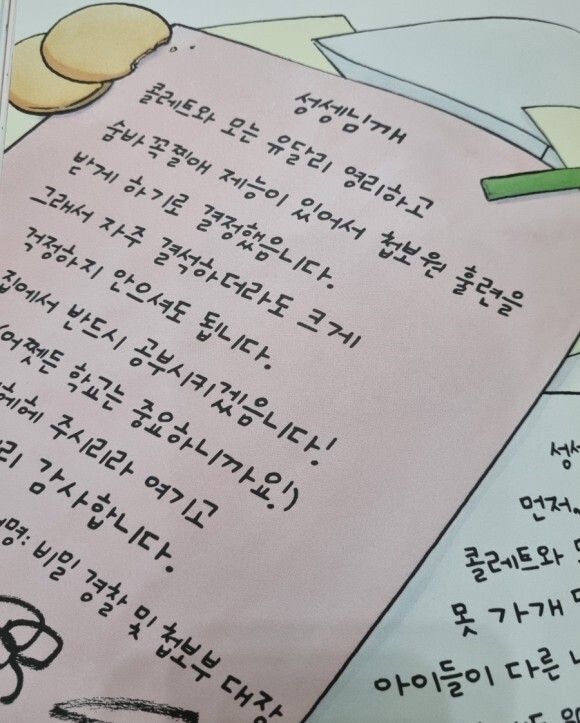 성세님깨
콜레트와 모는 유달리 영리하고
숨바꼭찔애 제능이 있어서 첩보원 훌련을
받게 하기로 결정했음니다.
그래서 자주 결석하더라도 크게
걱정하지 안으셔도 됩니다.
집에서 반드시 공부시키겠음니다!
(어쨋든 학교는 중요하니가요!)
헤헤 주시리라 여기고
리 감사합니다.
명: 비밀 경찰 및 첩보부 대장
성세
먼저,
콜레트와
못 가개
아이들이 다른